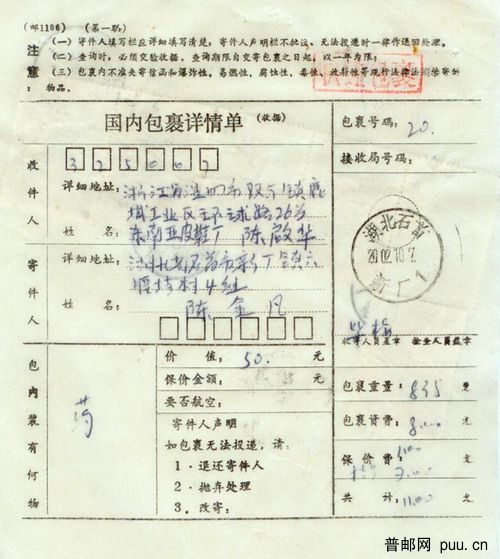 (邮1106) (第一联)
注意:
(一) 寄件人填写栏应详细填写清楚，寄件人声明栏不批注、无法投递时一律作退回处理。
(二) 查询时，必须交验收据。查询期限自交寄包裹之日起，以一年为限;
(三) 包裹内不准夹寄信函和爆炸性，易燃性，腐蚀性，毒性，放射性等现行法律法规禁寄
物品。
包裹
国内包裹详情单 (收据)
包裹号码: 20.
接收局号码:
收件人
325007
详细地址: 浙江省温州市双屿镇鹿
城工业区环球路26号
姓名: 东南亚皮鞋厂 陈啟华
寄件人
详细地址: 湖北省石首市新厂镇六
姓名: 陈金凡
湖北石首
2002.10.2
新厂1
收寄人员盖章 检查人员盖章
包内装有何物
药
价值: 50. 元
保价金额: 元
要否航空:
寄件人声明
如包裹无法投递，请:
1．退还寄件人
2．抛弃处理
3．改寄:
包裹重量: 835 克
包裹资费: 8.00 元
保价费: 1.00 元
共计: 11.00 元
普邮网 puu.cn